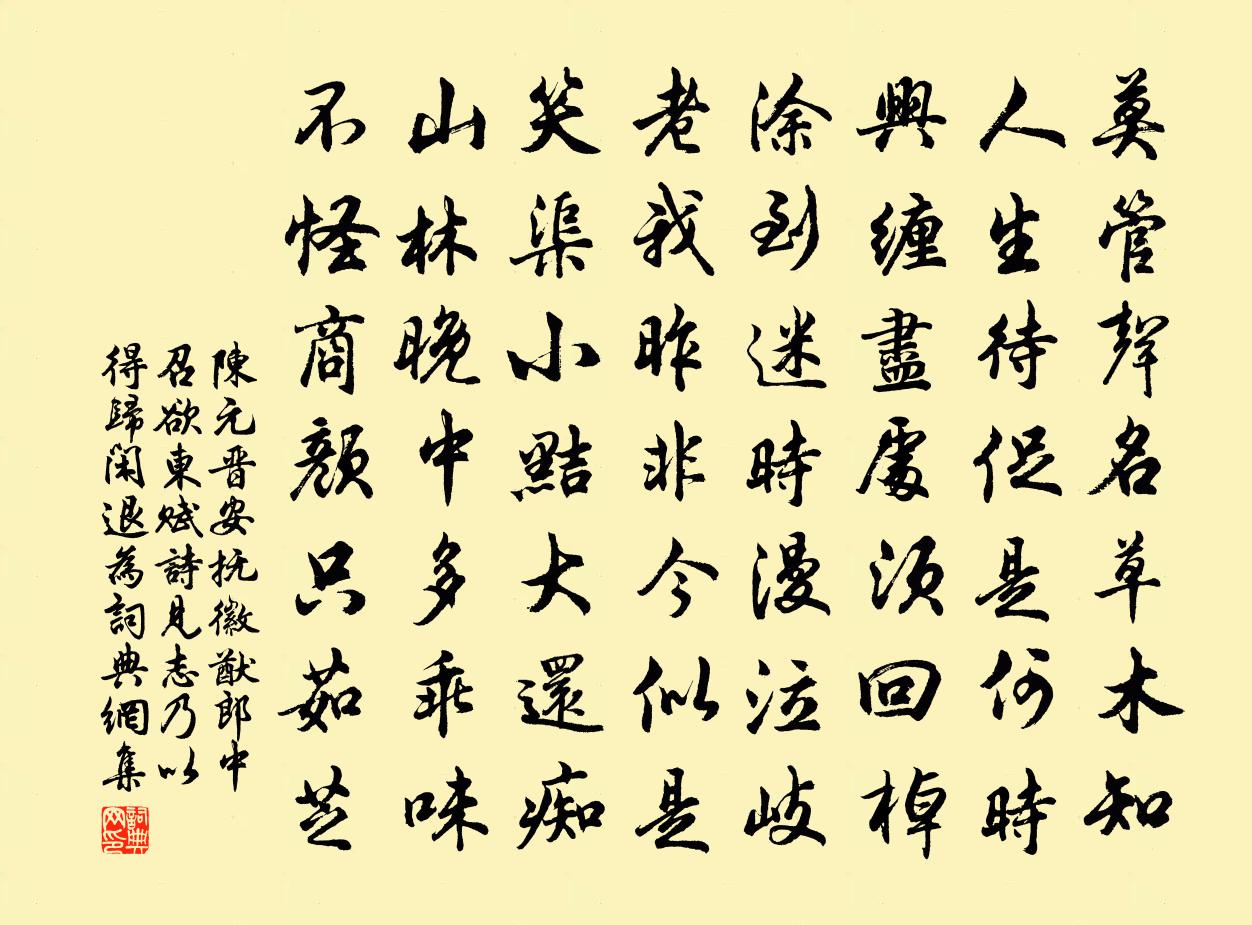 莫管聲名草木知
人生待促是何時
興纏盡處須回棹
涂到迷時漫泣歧
老我昨非今似是
笑渠小黠大還痴
山林晚中多乖味
不怪商顏只茹芝
陳元晋安抚徽猷郎中
召欲東賦詩見志乃以
得歸閑退為詞典網集
詞典网印